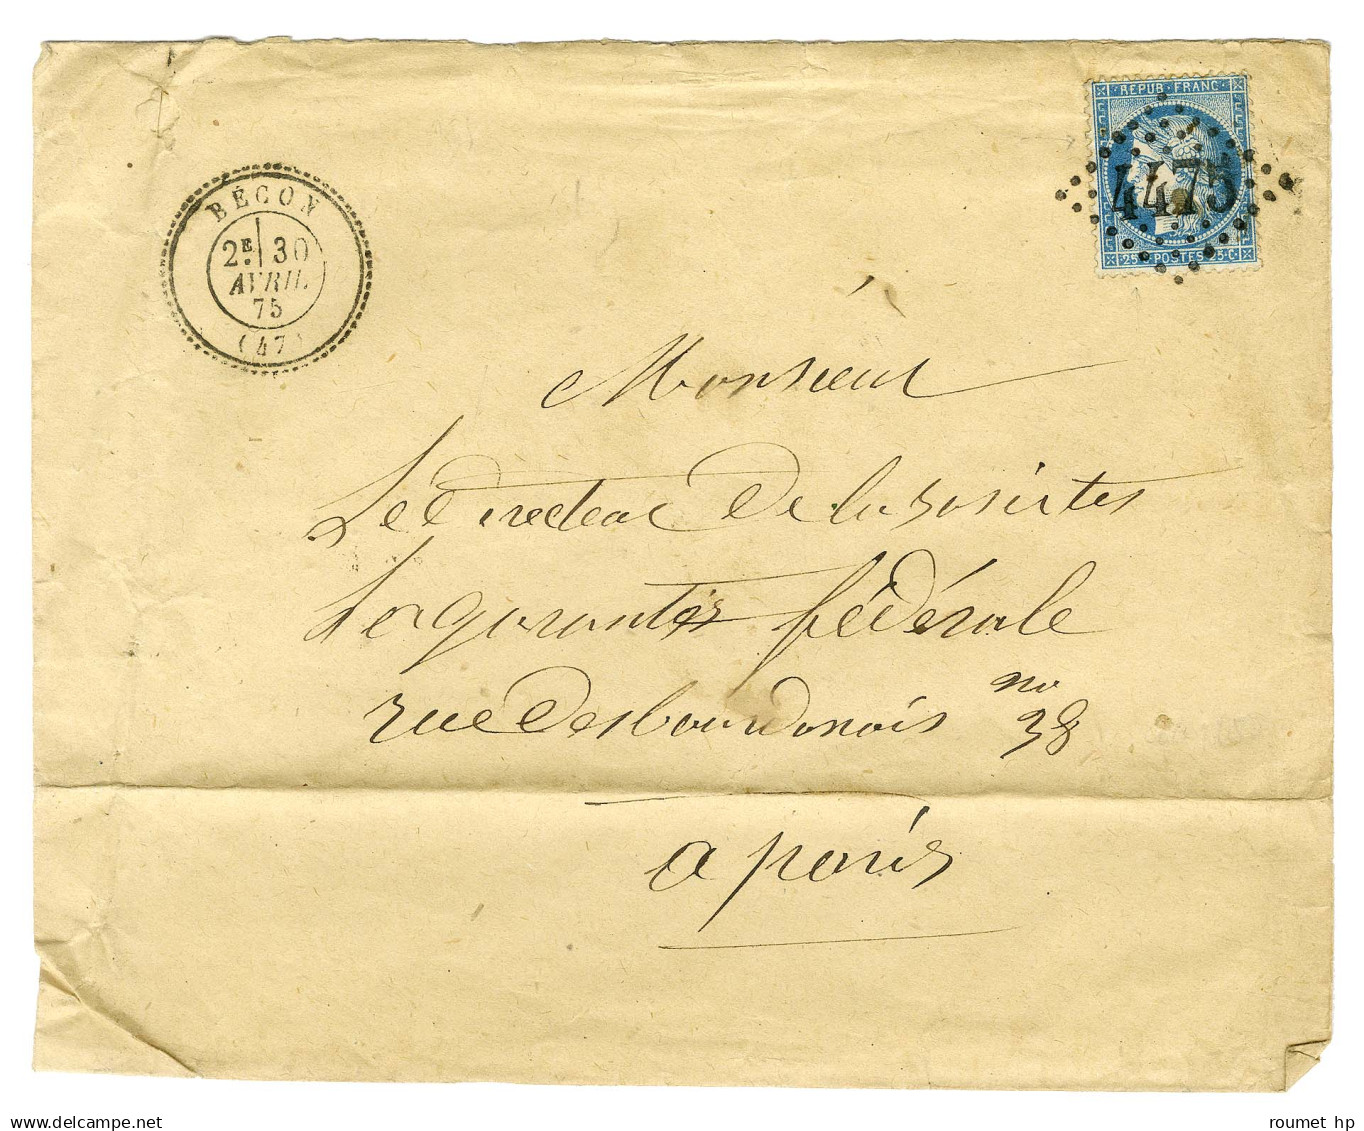 REPUB·FRANC·
4475
25 POSTES 25·C·
BÉCON
2E 30
AVRIL
75
(47)
Monsieur
Le directeur De la sosiétes
La garanties fédérale
rue Des bourdonnais no
38
a paris
roumet hp